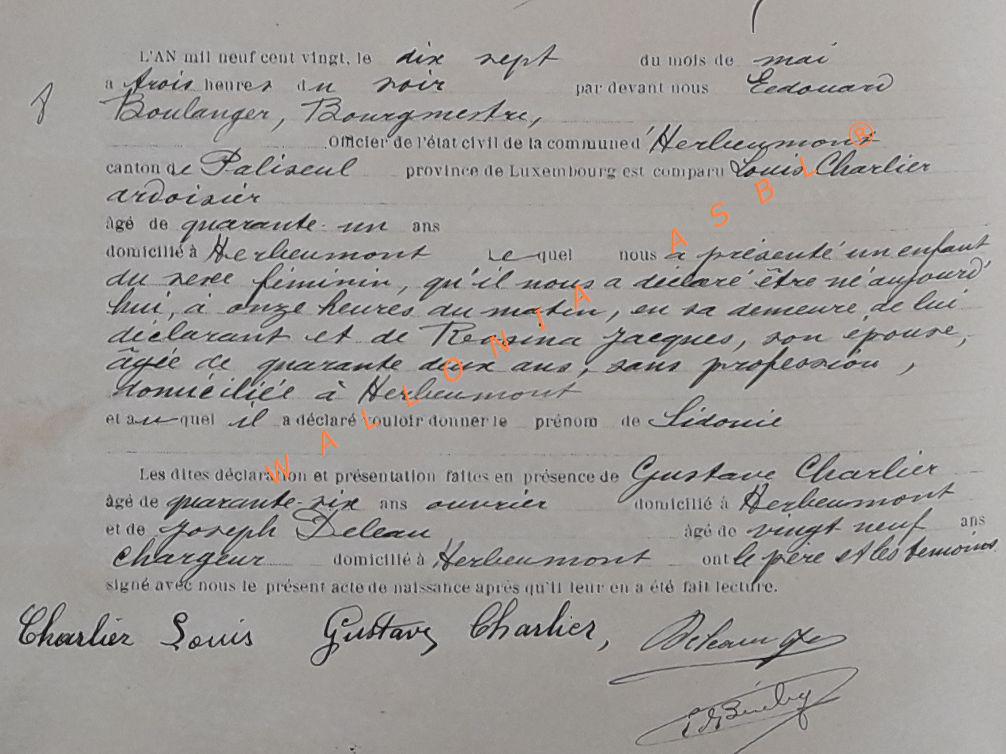 L'AN mil neuf cent vingt, le dix sept du mois de mai
a trois heures du soir par devant nous Eedouard
Boulanger, Bourgmestre,
Officier de l'état civil de la commune d'Herbeumont
canton de Paliseul province de Luxembourg est comparu Louis Charlier
ardoisier
âgé de quarante-un ans
domicilié à Herbeumont Lequel nous a présenté un enfant
du sexe féminin, qu'il nous a déclaré être né aujourd'
hui, à onze heures du matin, en sa demeure, de lui
déclarant et de Rosina Jacques, son épouse,
âgée de quarante deux ans, sans profession,
domiciliée à Herbeumont
et auquel il a déclaré vouloir donner le prénom de Sidonie
Les dites déclaration et présentation faites en présence de Gustave Charlier
âgé de quarante-six ans ouvrier domicilié à Herbeumont
et de Joseph Deleau âgé de vingt neuf ans
chargeur domicilié à Herbeumont ont le père et les témoins
signé avec nous le présent acte de naissance après qu'il leur en a été fait lecture.
Charlier Louis Gustave Charlier,
WALLONIA ASBL®